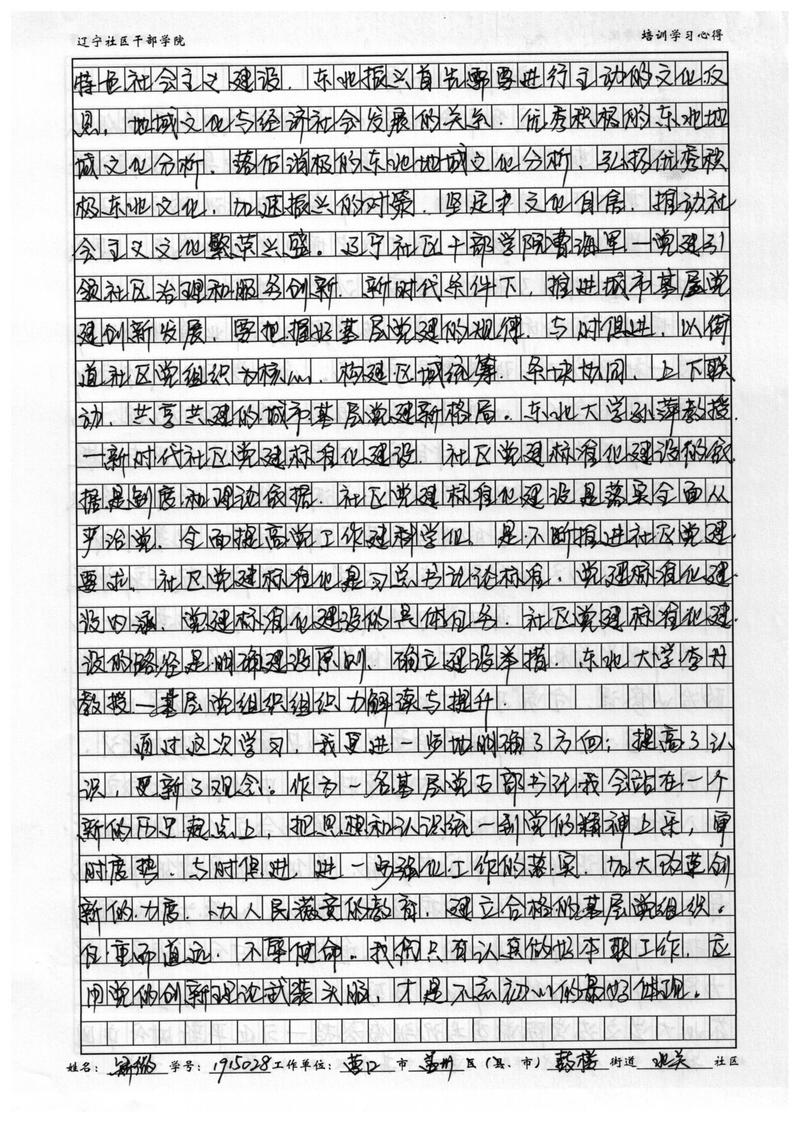 辽宁社区干部学院 培训学习心得
特色社会主义建设．东北振兴首先需要进行主动的文化反
思，地域文化与经济社会发展的关系．优秀积极的东北地
域文化分析．落伍消极的东北地域文化分析．弘扬优秀积
极东北文化．加速振兴的对策．坚定文化自信．推动社
会主义文化繁荣兴盛。辽宁社区干部学院曹海军一党建引
领社区治理和服务创新．新时代条件下，推进城市基层党
建创新发展，要把握好基层党建的规律．与时俱进．以街
道社区党组织为核心．构建区域统筹．条块协同．上下联
动．共享共建的城市基层党建新格局。东北大学孙萍教授
一新时代社区党建标准化建设．社区党建标准化建设的依
据是制度和理论依据．社区党建标准化建设是落实全面从
严治党．全面提高党工作建科学化．是不断推进社区党建
要求．社区党建标准化是习总书记论标准．党建标准化建
设内涵．党建标准化建设的具体任务．社区党建标准化建
设的路径是明确建设原则．确立建设举措．东北大学李丹
教授一基层党组织组织力解读与提升．
通过这次学习．我更进一步地明确了方向；提高了认
识，更新了观念。作为一名基层党支部书记我会站在一个
新的历史起点上，把思想和认识统一到党的精神上来，审
时度势．与时俱进．进一步强化工作的落实．加大改革创
新的力度．为人民满意的教育．建立合格的基层党组织。
任重而道远．不辱使命。我们只有认真做好本职工作．应
用党的创新理论武装头脑．才是不忘初心的最好体现。
姓名： 学号：1915028 工作单位：营口 市 盖州 区（县、市） 鼓楼 街道 社区